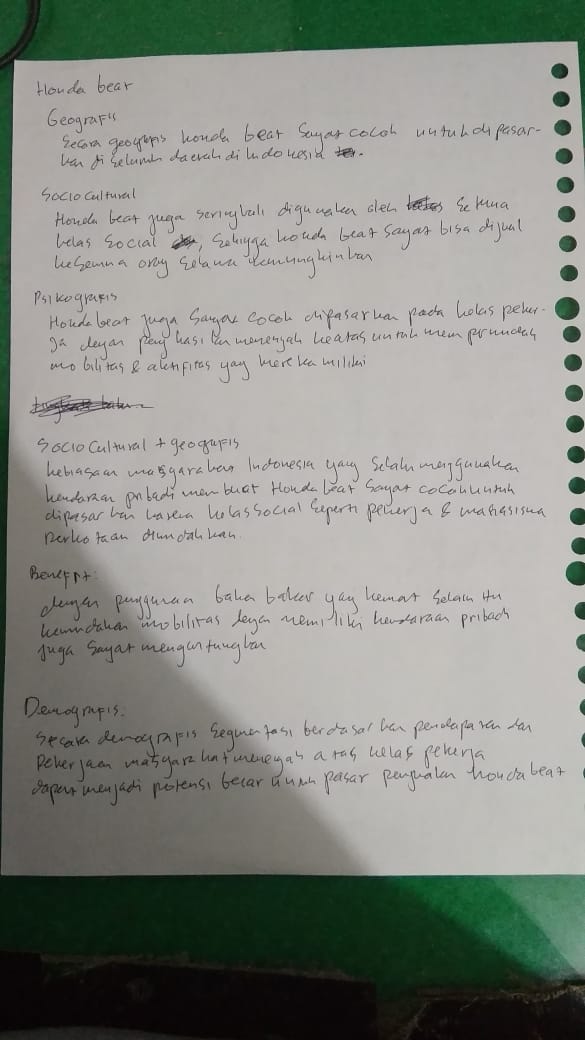 Honda beat
Geografis
Secara geografis honda beat Sangat cocok untuk di pasar-
kan di seluruh daerah di Indonesia
Socio Cultural
Honda beat juga seringkali digunakan oleh semua
kelas social, Sehingga honda beat Sangat bisa dijual
kesemua orang selama kemungkinkan
Psikografis
Honda beat juga Sangat cocok dipasarkan pada kelas peker-
ja dengan penghasilan menengah keatas untuk mempermudah
mobilitas & aktifitas yang mereka miliki
Socio Cultural + geografis
kebiasaan masyarakan Indonesia yang selalu menggunakan
kendaraan pribadi membuat Honda beat Sangat cocok untuk
dipasarkan karena kelas social seperti pekerja & mahasiswa
perkotaan dimudahkan
Benefit:
dengan penggunan bahan bakar yang hemat selain itu
kemudahan mobilitas dengan memiliki kendaraan pribadi
juga Sangat menguntungkan
Demografis.
Secara demografis Segmentasi berdasarkan pendapatan dan
Pekerjaan masyarakat menengah atas kelas pekerja
dapat menjadi potensi besar untuk pasar penjualan honda beat